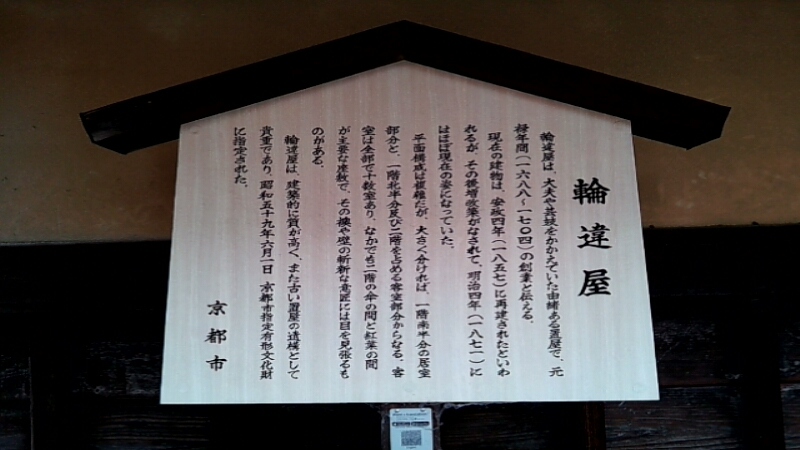 輪違屋
輪違屋は、太夫や芸妓をかかえていた由緒ある置屋で、元
禄年間（一六八八～一七〇四）の創業と伝える。
現在の建物は、安政四年（一八五七）に再建されたといわ
れるが、その後増改築がなされて、明治四年（一八七一）に
はほぼ現在の姿になっていた。
平面構成は複雑だが、大きく分ければ、一階南半分の居室
部分と、一階北半分及び二階を占める客室部分からなる。客
室は全部で十数室あり、なかでも二階の傘の間と紅葉の間
が主要な座敷で、その襖や壁の斬新な意匠には目を見張るも
のがある。
輪違屋は、建築的に質が高く、また古い置屋の遺構として
貴重であり、昭和五十九年六月一日 京都市指定有形文化財
に指定された。
京都市